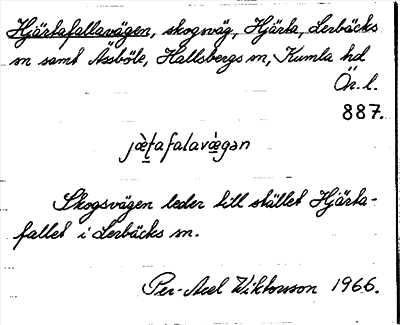 Hjärtafallavägen, skogsväg, Hjärta, Lerbäcks
sn samt Åssböle, Hallsbergs sn, Kumla hd
Ör. l.
887.
jæ̀ṭafalavæ̀gən
Skogsvägen leder till stället Hjärta-
fallet i Lerbäcks sn.
Per-Axel Wiktorsson 1966.